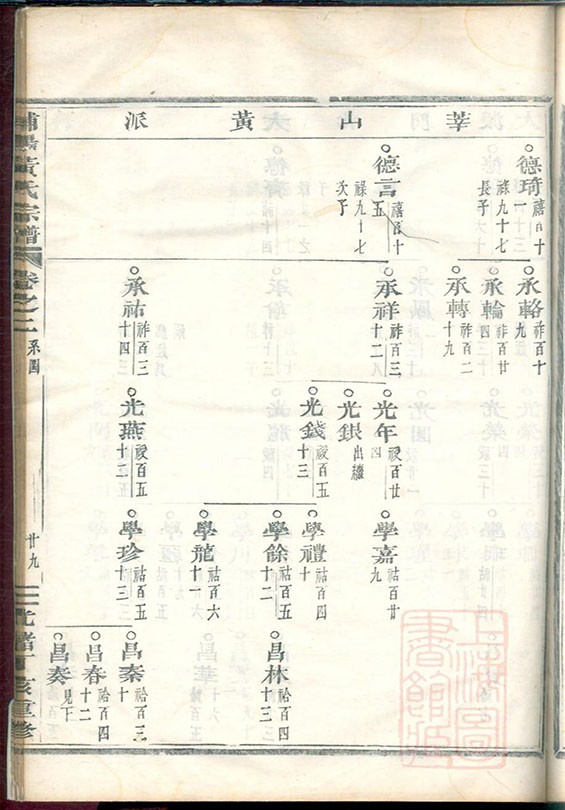 莘山黃派
德琦禧百十一
祿九十七長子
德言禧百十五
祿九十七次子
承輅祚百十九
承輪祚百廿四
承轉祚百二十九
承祥祚百三十二
承祐祚百三十四
光年祾百廿四
光銀出繼
光錢祾百五十三
光燕祾百五十二
學嘉祜百廿九
學禮祜百四十
學餘祜百五十二
學龍祜百六十一
學珍祜百五十三
昌林祫百四十三
昌秦祫百三十
昌春祫百四十二
昌奏見下
黃氏宗譜
卷之二
系圖
廿九
重修